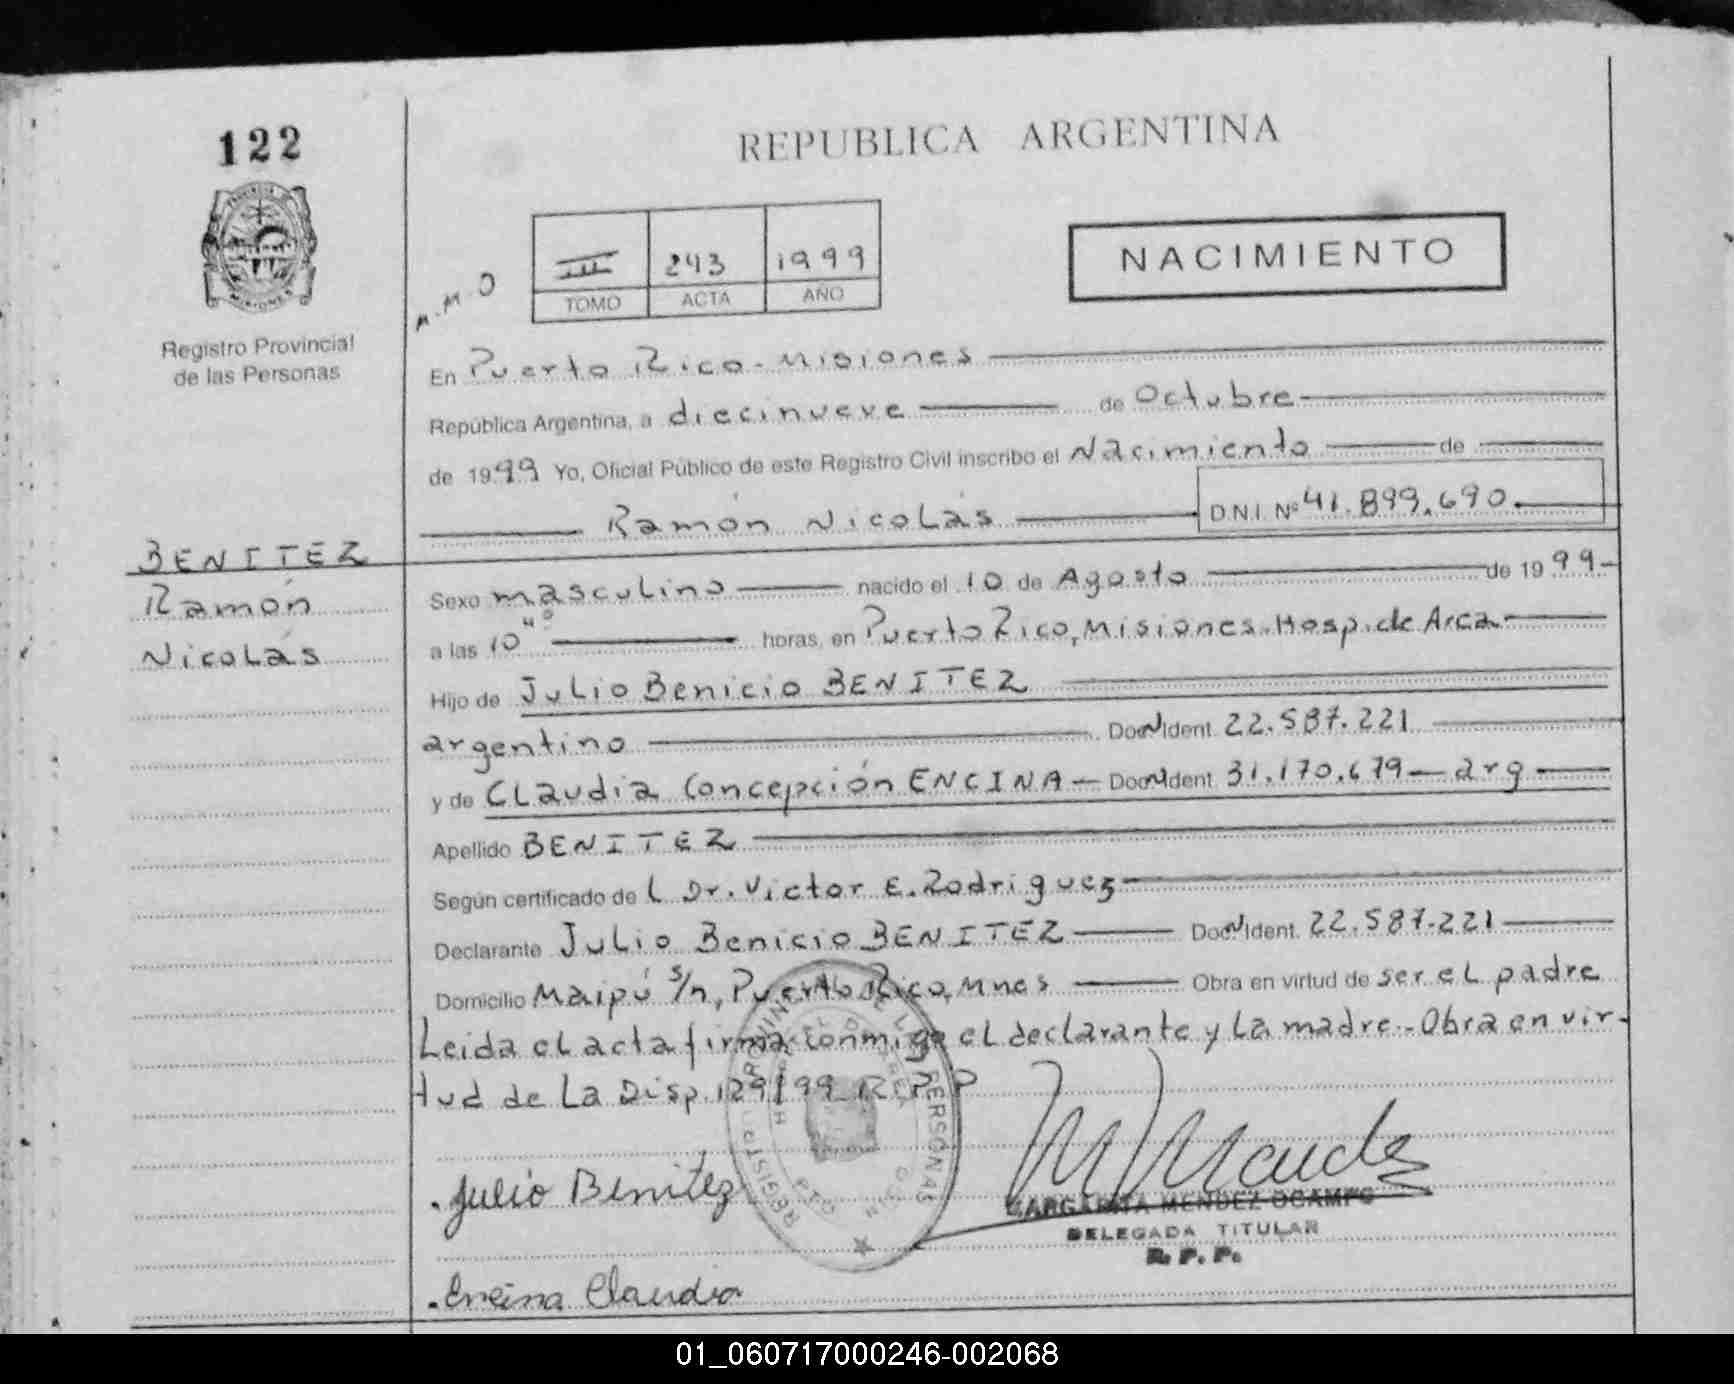 122
REPUBLICA ARGENTINA
Registro Provincial
de las Personas
M.M.O
III 243 1999
TOMO ACTA AÑO
NACIMIENTO
En Puerto Rico - Misiones
República Argentina, a diecinueve de Octubre
de 1999 Yo, Oficial Público de este Registro Civil inscribo el Nacimiento de
Ramón Nicolás D.N.I. Nº 41.899.690.
BENITEZ
Ramón
Nicolás
Sexo masculino nacido el 10 de Agosto de 1999-
a las 10 40 horas, en Puerto Rico, Misiones - Hosp. de Area
Hijo de Julio Benicio BENITEZ
argentino Doc. Ident. 22.587.221
y de Claudia Concepción ENCINA - Doc. Ident. 31.170.679 - arg
Apellido BENITEZ
Según certificado del Dr. Victor E. Rodriguez
Declarante Julio Benicio BENITEZ Doc. Ident. 22.587.221
Domicilio Maipú s/n, Puerto Rico, Mnes Obra en virtud de ser el padre
Leida el acta firma conmigo el declarante y la madre - Obra en vir-
tud de la Disp. 129/99 R.P.P
REGISTRO PROVINCIAL DE LAS PERSONAS
Julio Benitez
MARGARITA MENDEZ OCAMPO
DELEGADA TITULAR
R. P. P.
Encina Claudia
01_060717000246-002068